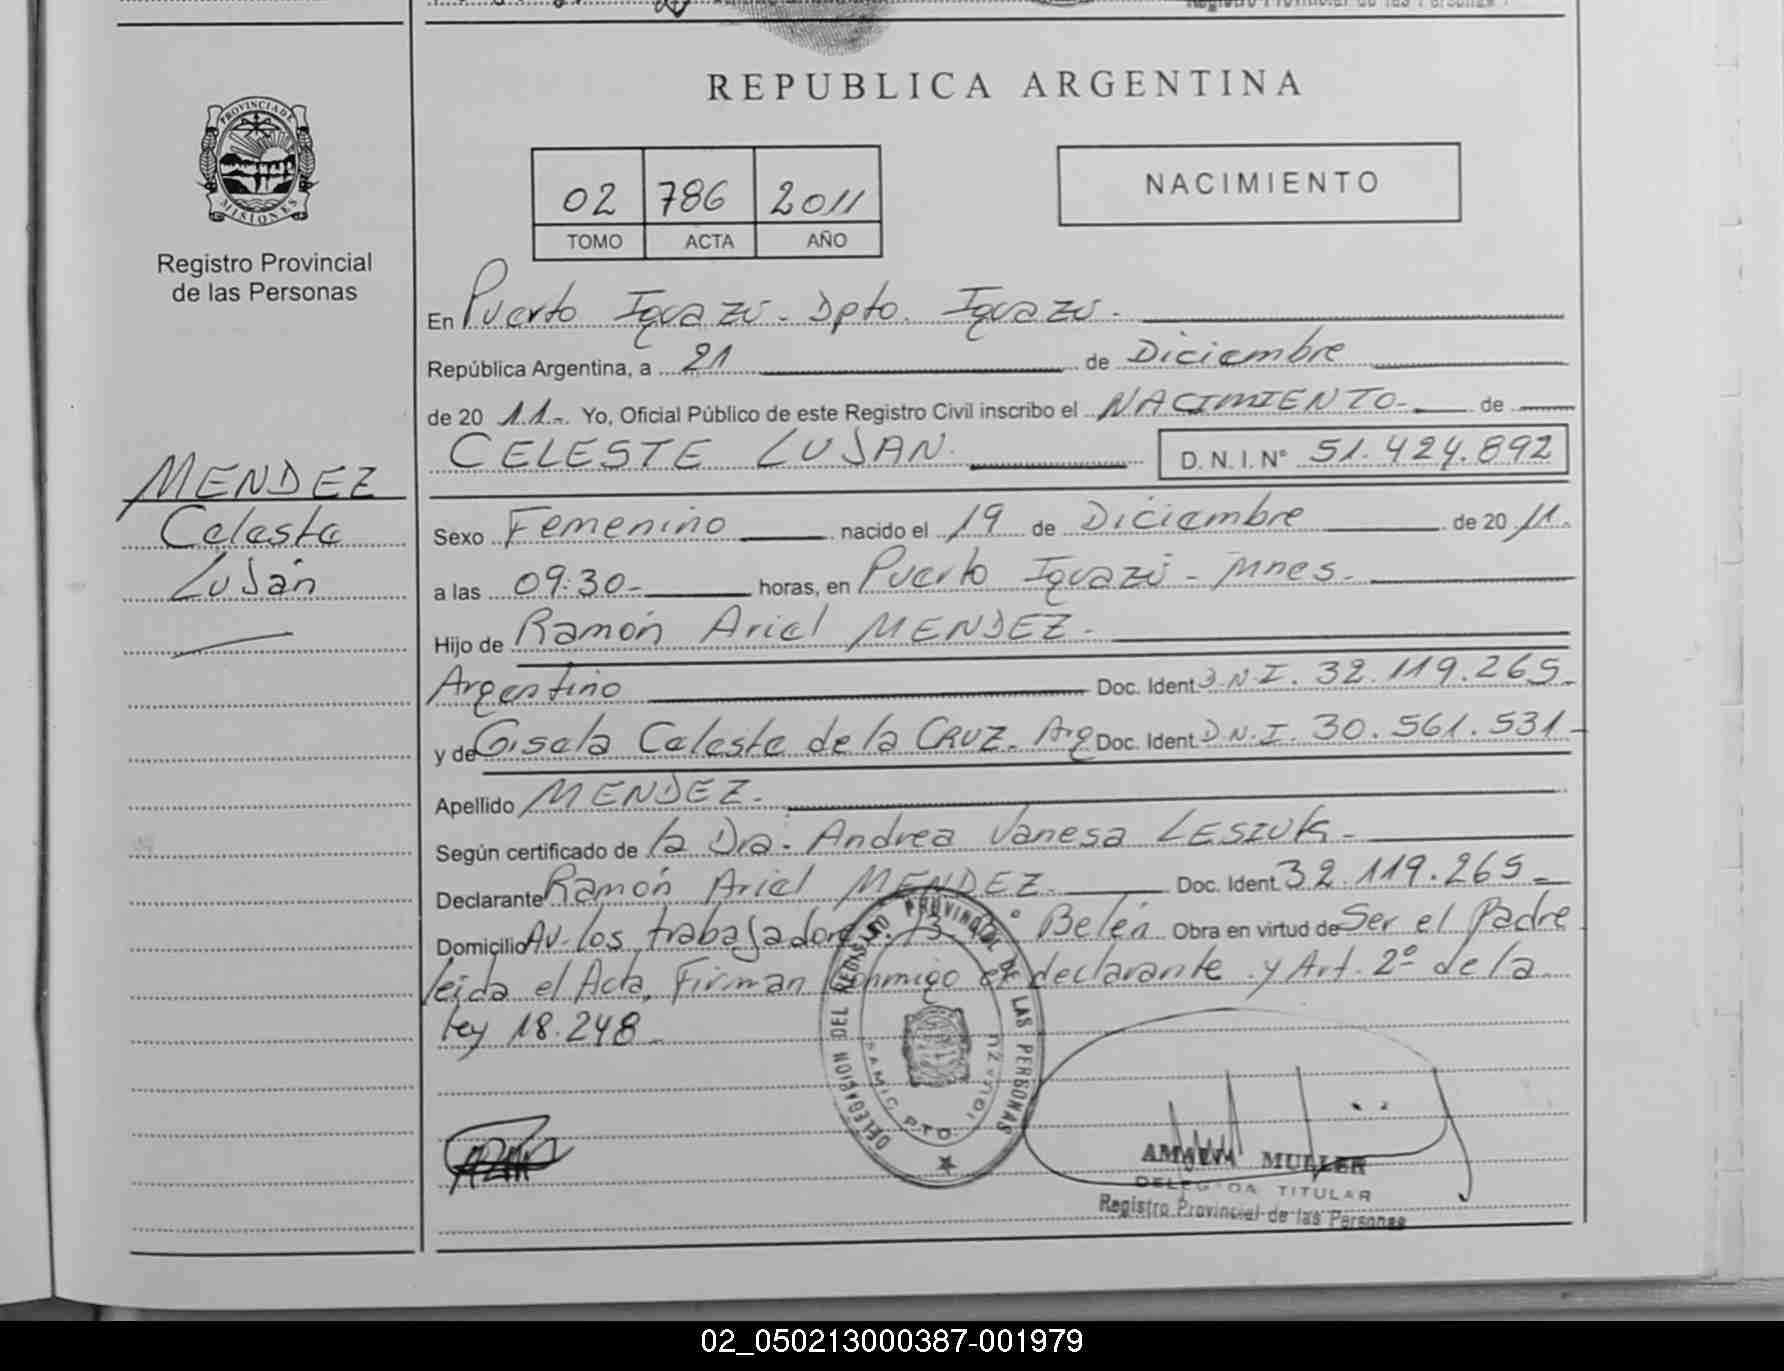 Registro Provincial de las Personas
REPUBLICA ARGENTINA
PROVINCIA DE MISIONES
Registro Provincial
de las Personas
02 786 2011
TOMO ACTA AÑO
NACIMIENTO
En Puerto Iguazú - Dpto. Iguazú.
República Argentina, a 21 de Diciembre
de 20 11.- Yo, Oficial Público de este Registro Civil inscribo el NACIMIENTO- de
CELESTE LUJAN. D.N.I.Nº 51.424.892
MENDEZ
Celeste
Luján
Sexo Femenino nacido el 19 de Diciembre de 20 11.
a las 09:30- horas, en Puerto Iguazú - Mnes.
Hijo de Ramón Ariel MENDEZ.
Argentino Doc. Ident D.N.I. 32.119.265-
y de Gisela Celeste de la CRUZ. Arg Doc. Ident. D.N.I. 30.561.531-
Apellido MENDEZ.
Según certificado de la Dra. Andrea Vanesa LESIUK-
Declarante Ramón Ariel MENDEZ. Doc. Ident. 32.119.265-
Domicilio Av. los trabajadores Bº Belén Obra en virtud de Ser el Padre
leida el Acta, Firman conmigo el declarante y Art. 2º de la
ley 18.248-
DELEGACION DEL REGISTRO PROVINCIAL DE LAS PERSONAS
SAMIC PTO. IGUAZU
MULLER
DELEGADA TITULAR
Registro Provincial de las Personas
02_050213000387-001979